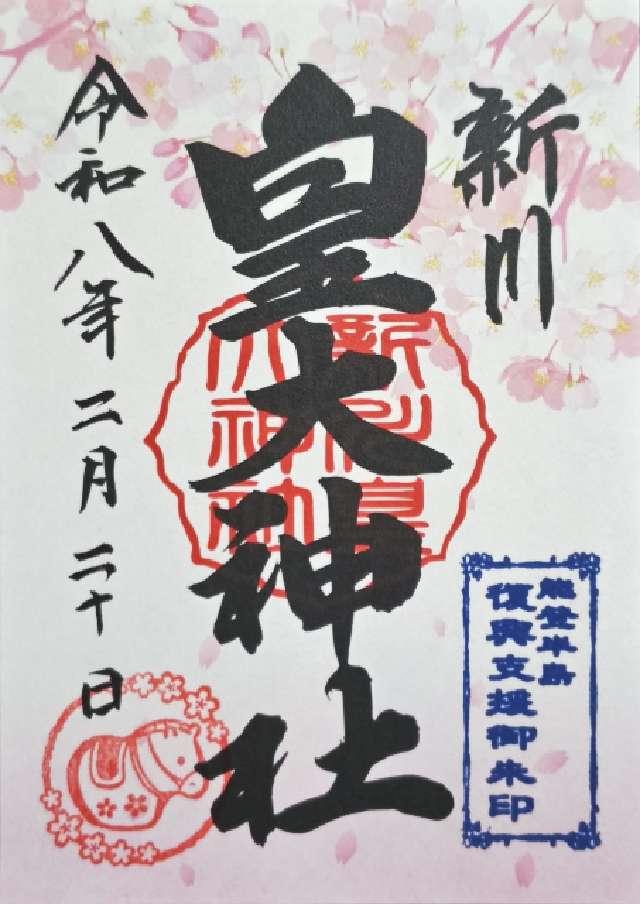 新川
皇大神社
新川皇
大神社
令和八年二月二十日
能登半島
復興支援御朱印